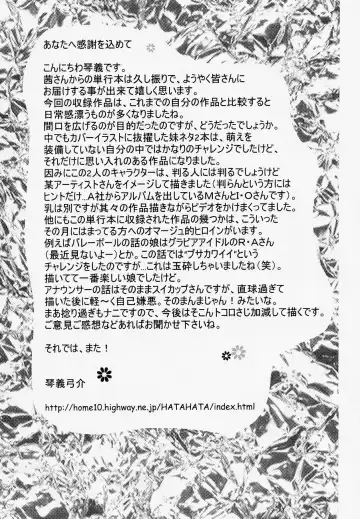 あなたへ感謝を込めて
こんにちわ琴義です。
茜さんからの単行本は久し振りで、ようやく皆さんに
お届けする事が出来て嬉しく思います。
今回の収録作品は、これまでの自分の作品と比較すると
日常感漂うものが多くなりましたね。
間口を広げるのが目的だったのですが、どうだったでしょうか。
中でもカバーイラストに抜擢した妹ネタ2本は、萌えを
装備していない自分の中ではかなりのチャレンジでしたけど、
それだけに思い入れのある作品になりました。
因みにこの2人のキャラクターは、判る人には判るでしょうけど
某アーティストさんをイメージして描きました(判らんという方には
ヒントだけ…A社からアルバムを出しているMさんとI・Oさんです)。
乳は別ですが其々の作品描きながらビデオをかけまくってました。
他にもこの単行本に収録された作品の幾つかは、こういった
その月にはまってる方へのオマージュ的ヒロインがいます。
例えばバレーボールの話の娘はグラビアアイドルのR・Aさん
(最近見ないよーなあ)とか。この話では"ブサカワイイ"という
チャレンジをしたのですが…これは玉砕しちゃいましたね(笑)。
描いてて一番楽しい娘でしたけど。
アナウンサーの話はそのままスイカップさんですが、直球過ぎて
描いた後に軽~く自己嫌悪。そのまんまじゃん!みたいな。
まあ捻り過ぎもナニですので、今後はそこんトコロさじ加減して描くです。
ご意見ご感想などあればお聞かせ下さいね。
それでは、また!
琴義弓介
http://home10.highway.ne.jp/HATAHATA/index.html